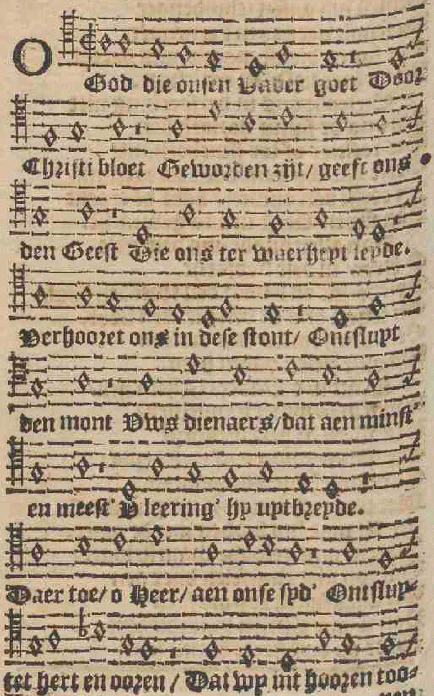 O God die onsen Vader goet Door
Christi bloet Geworden zijt/ geeft ons
den Geest Die ons ter waerheyt leyde.
Verhooret ons in dese stont/ Ontsluyt
den mont Uws dienaers/dat aen minst'
en meest' U leering' hy uytbreyde.
Daer toe/ o Heer/ aen onse syd' Ontsluy-
tet hert en ooren / Dat wy uit hooren too-